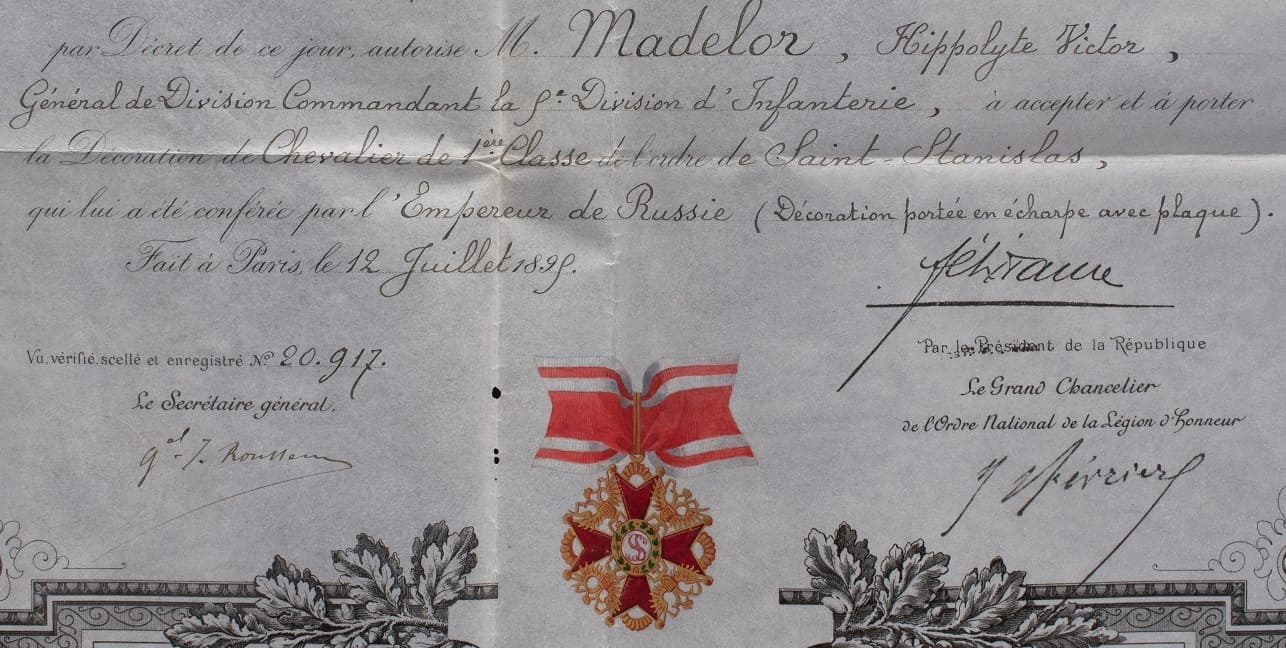 par Décret de ce jour, autorise M. Madelor, Hippolyte Victor,
Général de Division Commandant la 5e Division d'Infanterie, à accepter et à porter
la Décoration de Chevalier de 1ère Classe de l'ordre de Saint-Stanislas,
qui lui a été conférée par l'Empereur de Russie (Décoration portée en écharpe avec plaque).
Fait à Paris, le 12 Juillet 1895.
Félix Faure
Vu, vérifié, scellé et enregistré No 20.917.
Le Secrétaire général,
gal J. Rousseau
Par le Président de la République
Le Grand Chancelier
de l'Ordre National de la Légion d'honneur
Février
SS